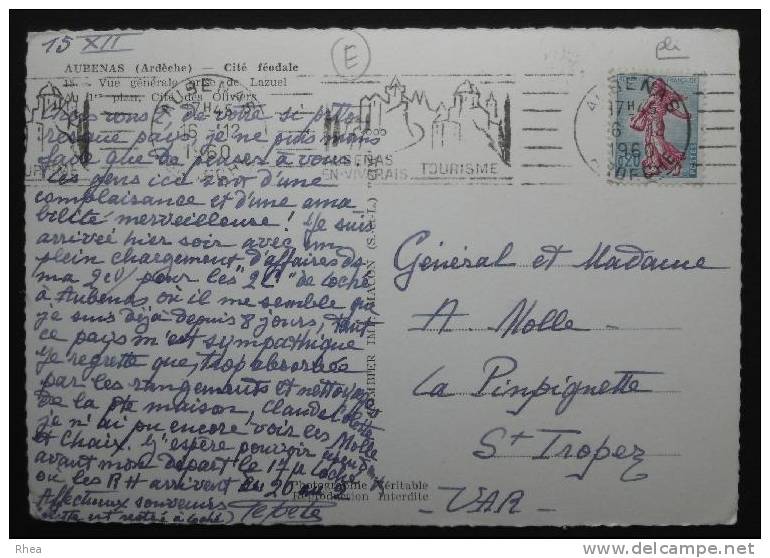 15 XII
E
pli
AUBENAS (Ardèche) — Cité féodale
15. - Vue générale prise de Lazuel
Au 1er plan, Cité des Oliviers
AUBENAS
17H45
16-12
1960
ARDECHE
AUBENAS
EN-VIVARAIS
TOURISME
AUBENAS
17H45
16
1960
ARDECHE
FRANÇAISE
0,20
POSTES
de vous si
pays je ne puis
que de penser à vous
Les gens ici sont d'une
complaisance et d'une ama
bilité merveilleuse! Je suis
arrivée hier soir avec un
plein chargement d'affaires ds
ma 2cv pour les "2 C" de Loche
à Aubenas où il me semble que
je suis déjà depuis 8 jours, tant
ce pays m'est sympathique
Je regrette que, trop absorbée
par les rangements et nettoyage
de la pte maison, Claude
je n'ai pu encore voir les Nolle
et Chaix. J'espère pouvoir
avant mon départ le 17 Loche
où les RH arrivent 20
Affectueux souvenirs
est restée à Loche) Tetete
COMBIER IMP. MACON (S.-&-L.)
Photographie Véritable
Reproduction Interdite
Général et Madame
A Nolle
La Pinpignette
St Tropez
-VAR-
http://rhea63.delcampe.net
Rhea